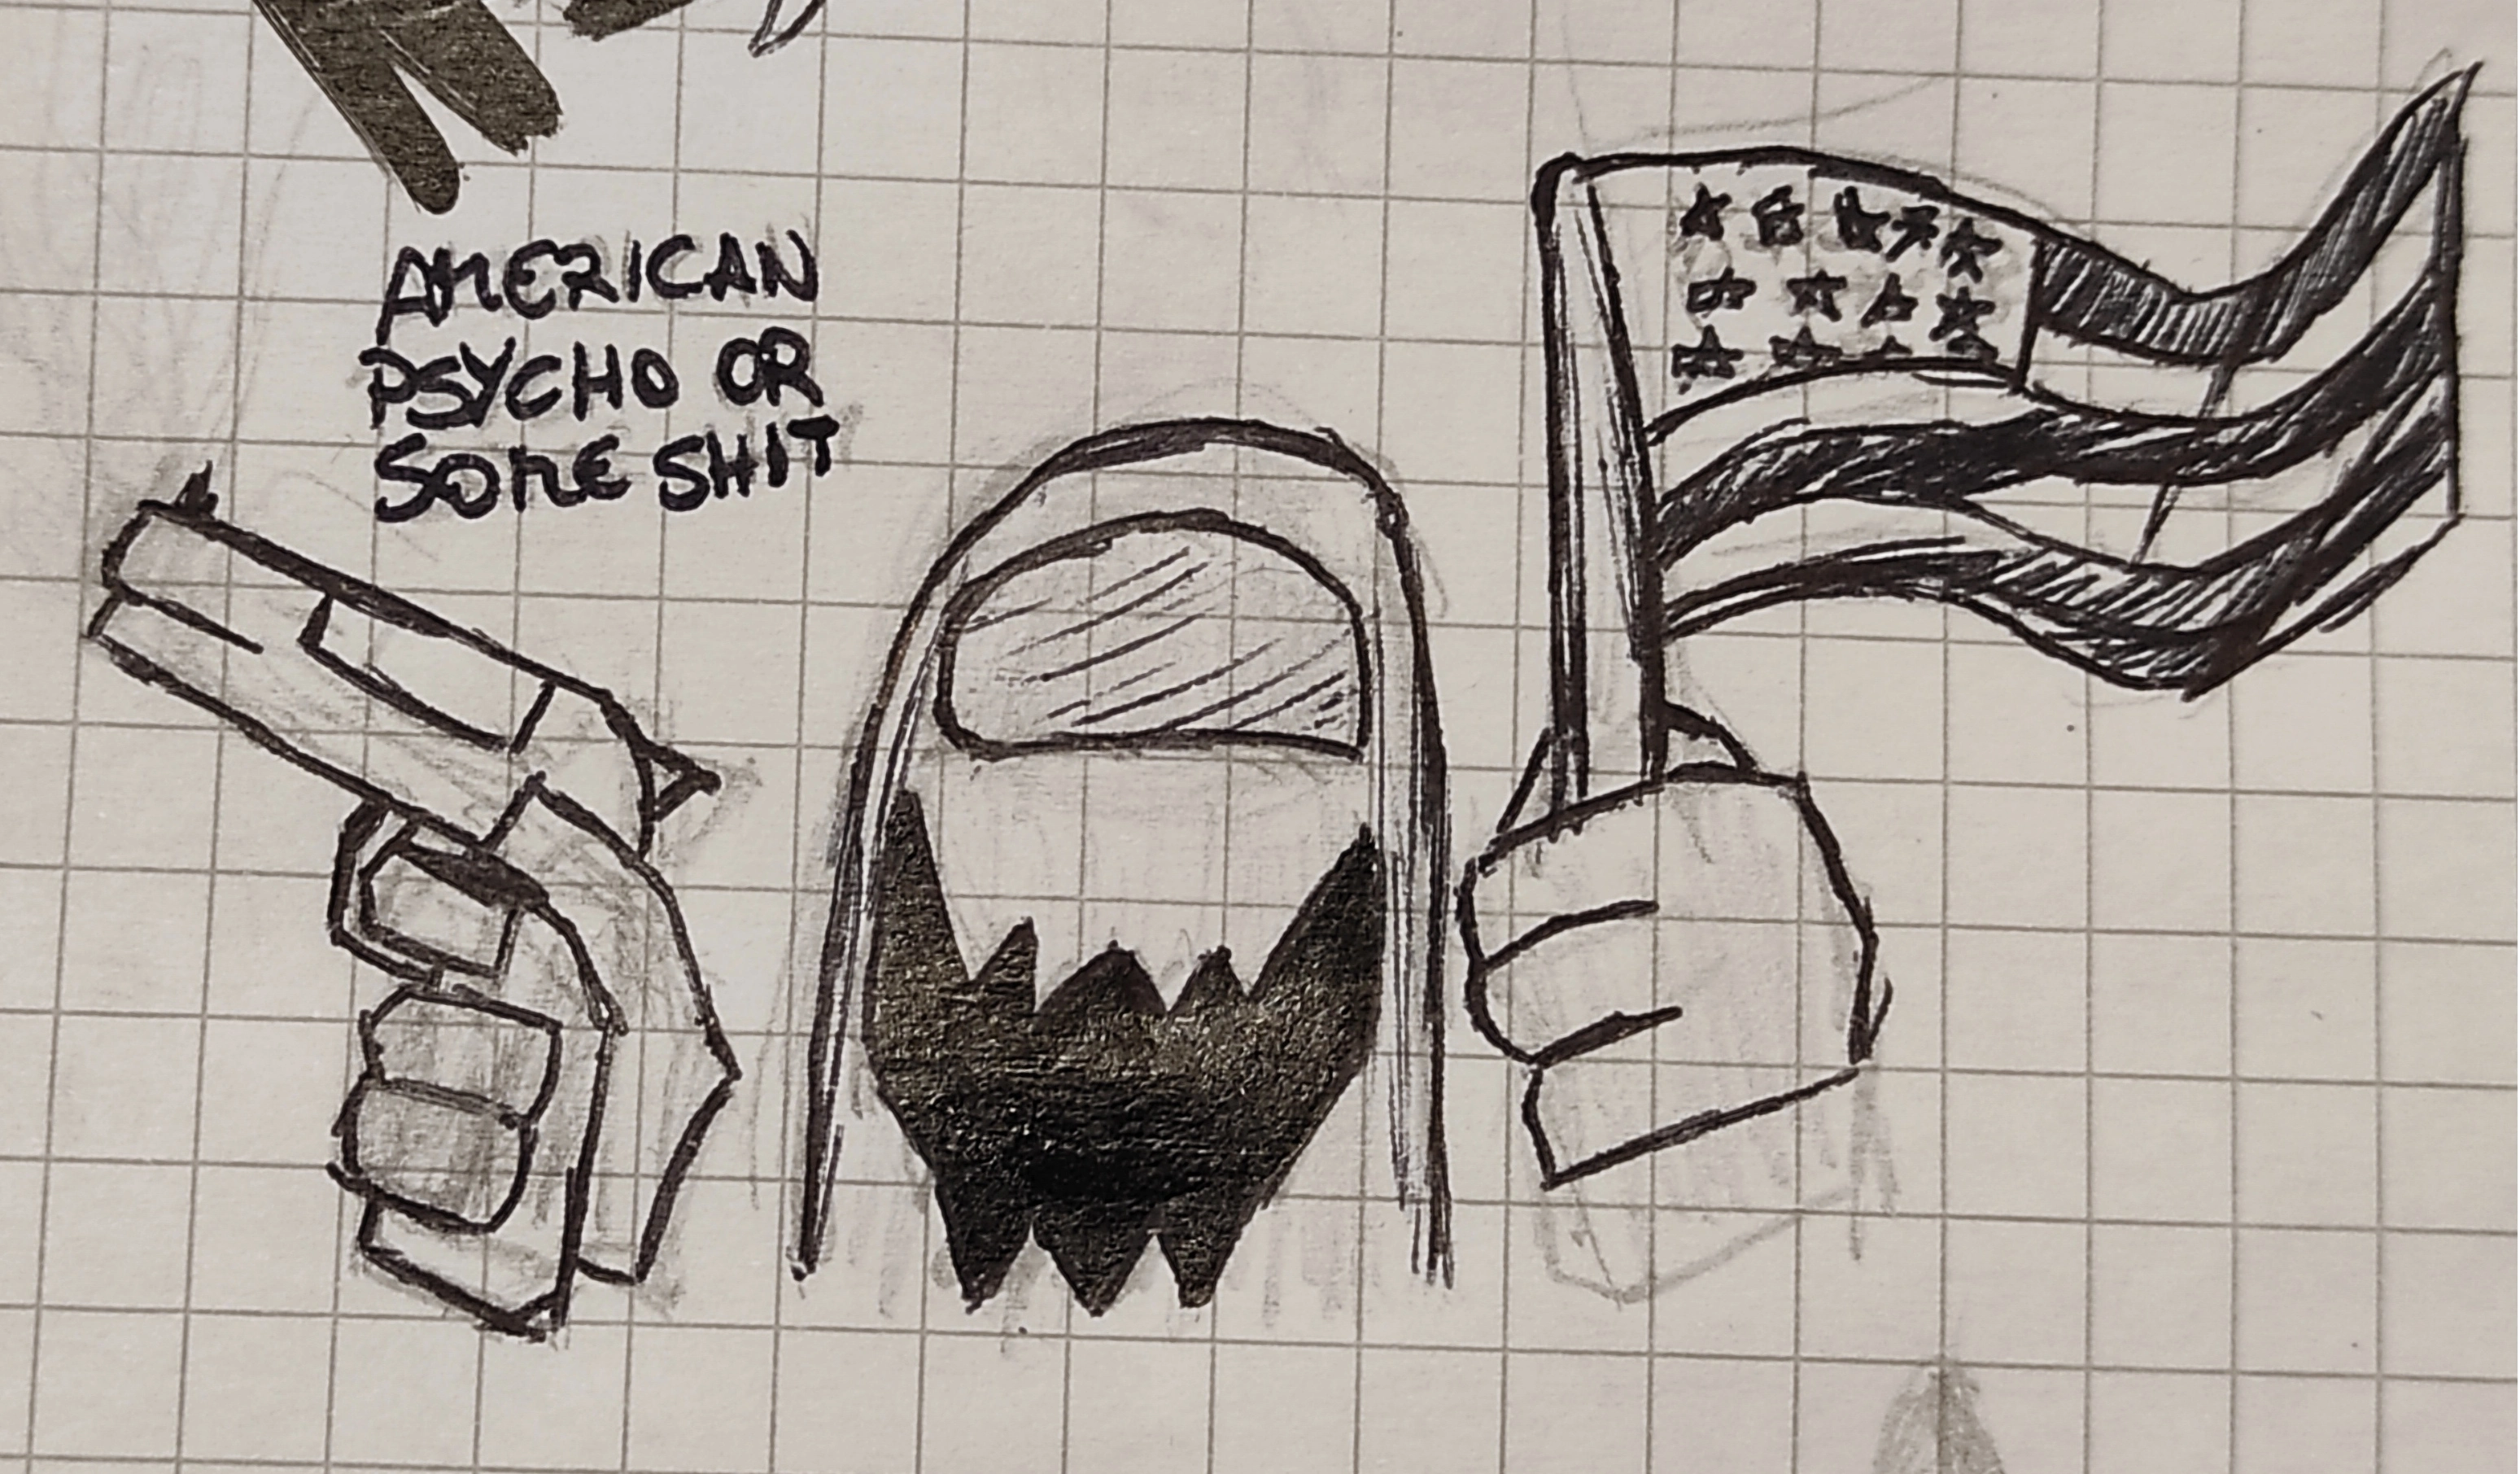 AMERICAN
PSYCHO OR
SOME SHIT